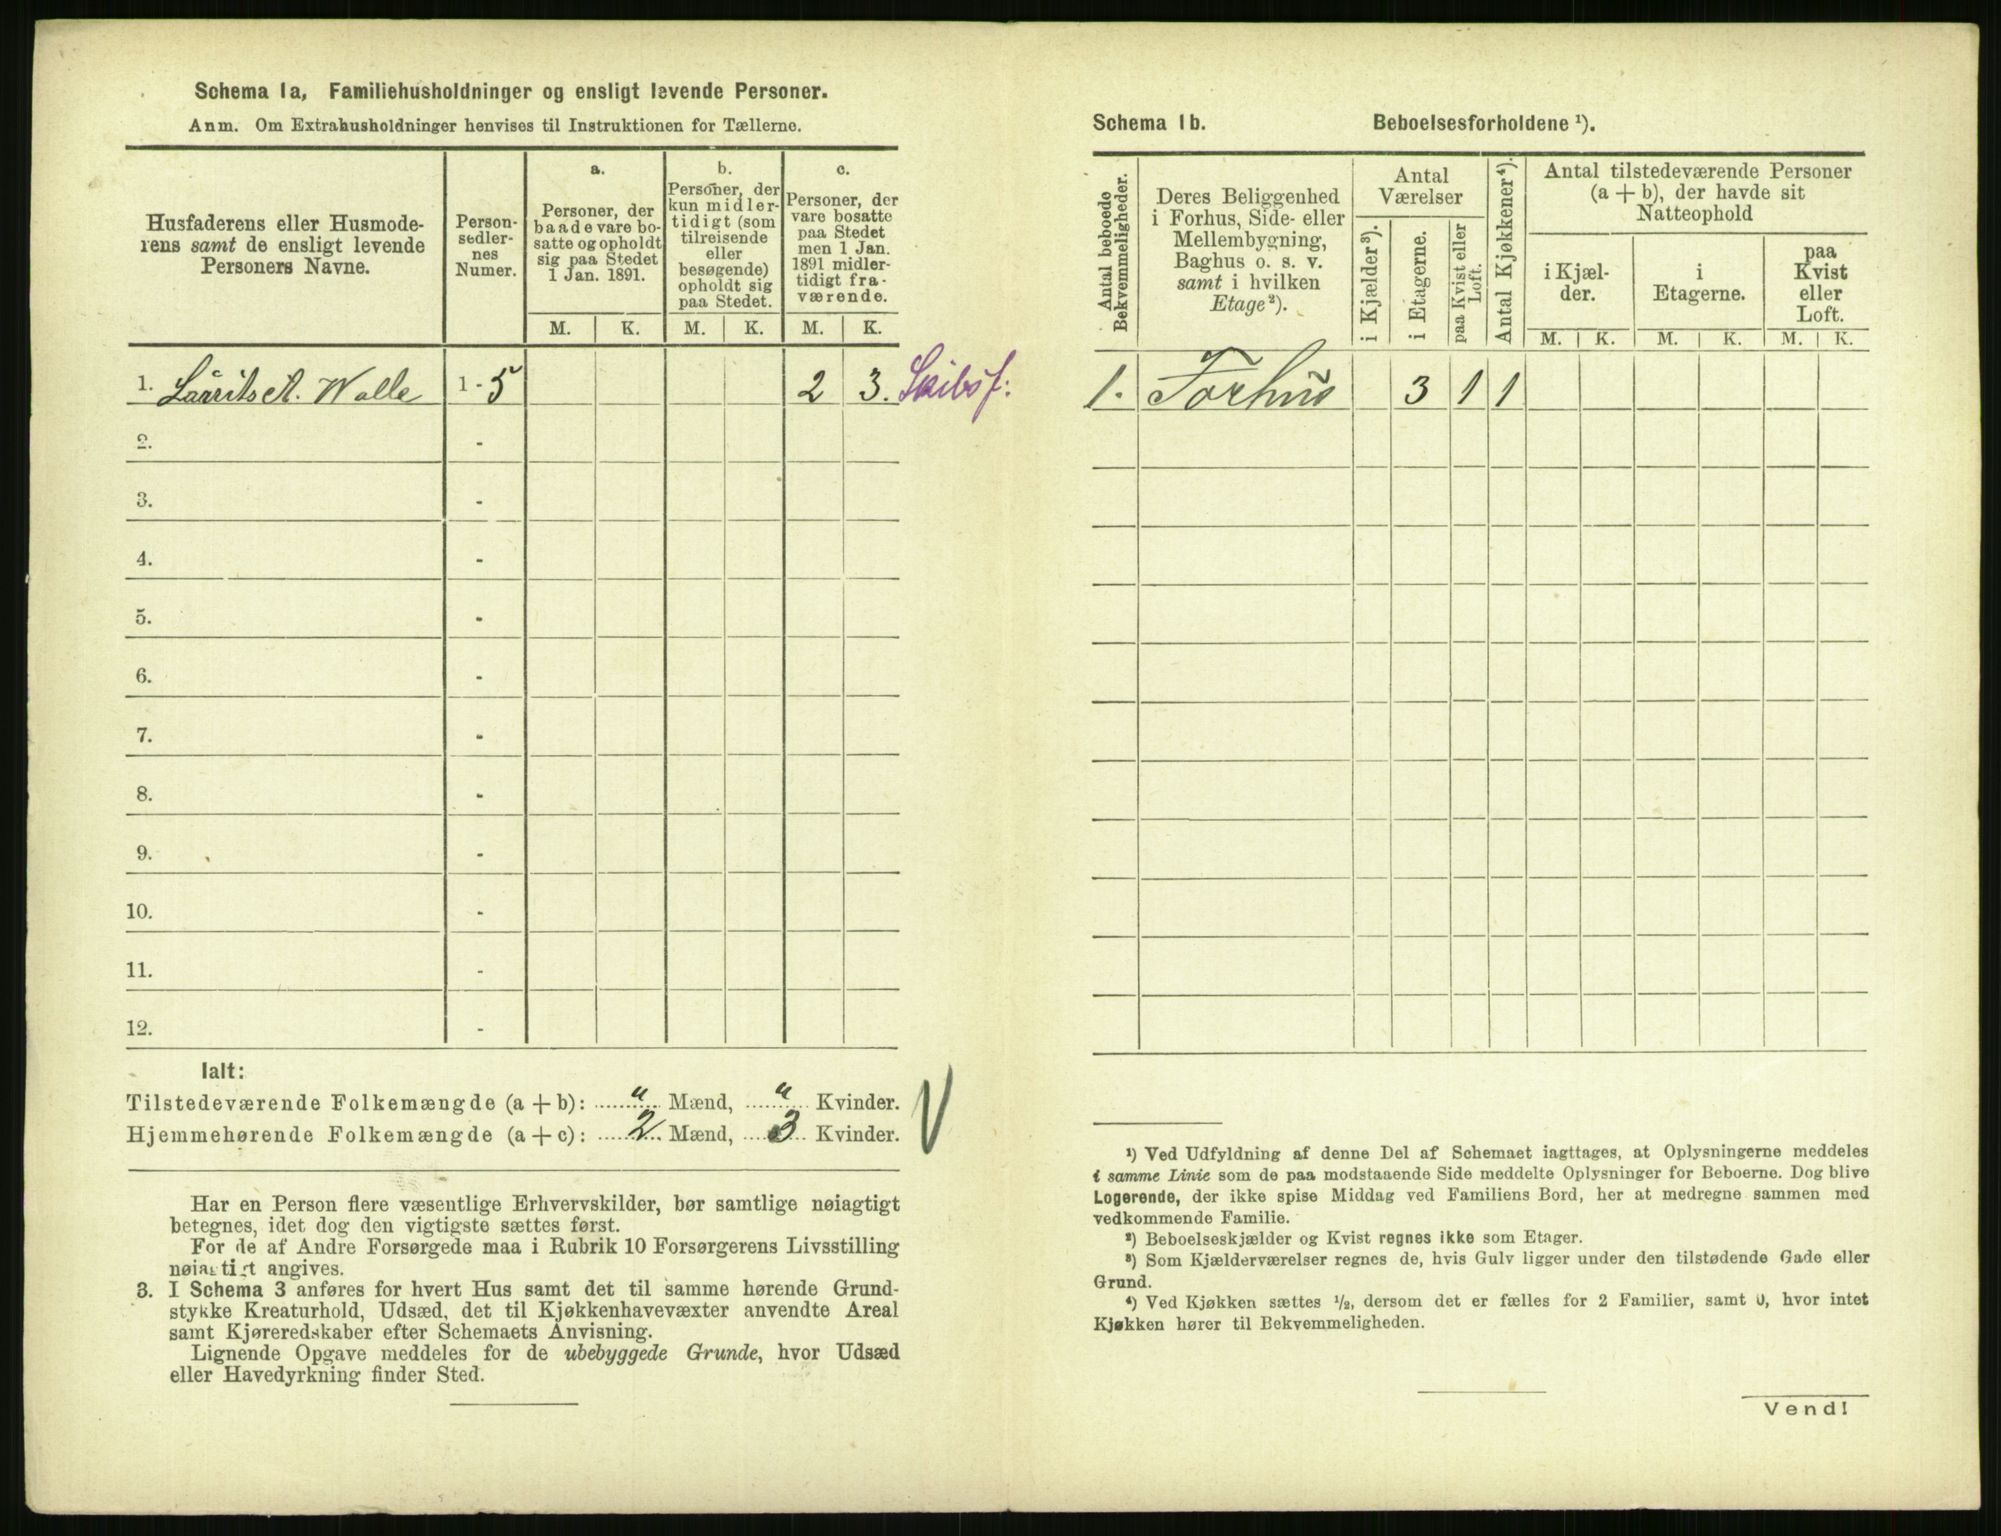 Schema 1a, Familiehusholdninger og ensligt levende Personer.
Anm. Om Extrahusholdninger henvises til Instruktionen for Tællerne.
Husfaderens eller Husmode-
rens samt de ensligt levende
Personers Navne.
Person-
sedler-
nes
Numer.
a.
Personer, der
baade vare bo-
satte og opholdt
sig paa Stedet
1 Jan. 1891.
b.
Personer, der
kun midler-
tidigt (som
tilreisende
eller
besøgende)
opholdt sig
paa Stedet.
c.
Personer, der
vare bosatte
paa Stedet
men 1 Jan.
1891 midler-
tidigt fra-
værende.
M. K. M. K. M. K.
1. A. Walle 1 - 5 2 3. Skibsf:
2. -
3. -
4. -
5. -
6. -
7. -
8. -
9. -
10. -
11. -
12. -
Ialt:
Tilstedeværende Folkemængde (a + b): " Mænd, " Kvinder.
Hjemmehørende Folkemængde (a + c): 2 Mænd, 3 Kvinder.
Har en Person flere væsentlige Erhvervskilder, bør samtlige nøiagtigt
betegnes, idet dog den vigtigste sættes først.
For de af Andre Forsørgede maa i Rubrik 10 Forsørgerens Livsstilling
nøiagtigt angives.
3. I Schema 3 anføres for hvert Hus samt det til samme hørende Grund-
stykke Kreaturhold, Udsæd, det til Kjøkkenhavevæxter anvendte Areal
samt Kjøreredskaber efter Schemaets Anvisning.
Lignende Opgave meddeles for de ubebyggede Grunde, hvor Udsæd
eller Havedyrkning finder Sted.
Schema 1b. Beboelsesforholdene ¹).
Antal beboede
Bekvemmeligheder.
Deres Beliggenhed
i Forhus, Side- eller
Mellembygning,
Baghus o. s. v.
samt i hvilken
Etage ²).
Antal
Værelser
i Kjælder ³).
i Etagerne.
paa Kvist eller
Loft.
Antal Kjøkkener ⁴).
Antal tilstedeværende Personer
(a + b), der havde sit
Natteophold
i Kjæl-
der.
i
Etagerne.
paa
Kvist
eller
Loft.
M. K. M. K. M. K.
1. Forhus 3 1 1
¹) Ved Udfyldning af denne Del af Schemaet iagttages, at Oplysningerne meddeles
i samme Linie som de paa modstaaende Side meddelte Oplysninger for Beboerne. Dog blive
Logerende, der ikke spise Middag ved Familiens Bord, her at medregne sammen med
vedkommende Familie.
²) Beboelseskjælder og Kvist regnes ikke som Etager.
³) Som Kjælderværelser regnes de, hvis Gulv ligger under den tilstødende Gade eller
Grund.
⁴) Ved Kjøkken sættes ½, dersom det er fælles for 2 Familier, samt 0, hvor intet
Kjøkken hører til Bekvemmeligheden.
Vend!